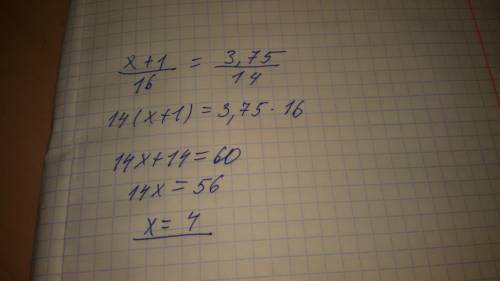 x+1/16 = 3,75/14
14(x+1) = 3,75·16
14x+14=60
14x = 56
x= 4